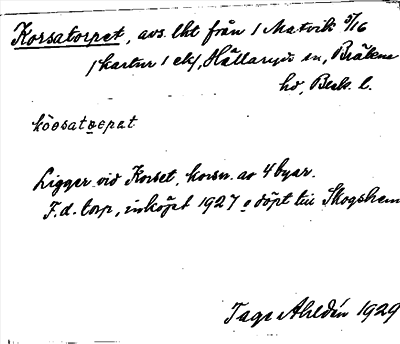 Korsatorpet, avs. lht från 1 Matvik 5/16
(kartnr 1 ek), Hällaryds sn, Bräkne
hd, Blek. l.
kåosatɷepat
Ligger vid Korset, korsn. av 4 byar.
F.d. torp, inköpt 1927 o döpt till Skogshem
Tage Ahldén 1929